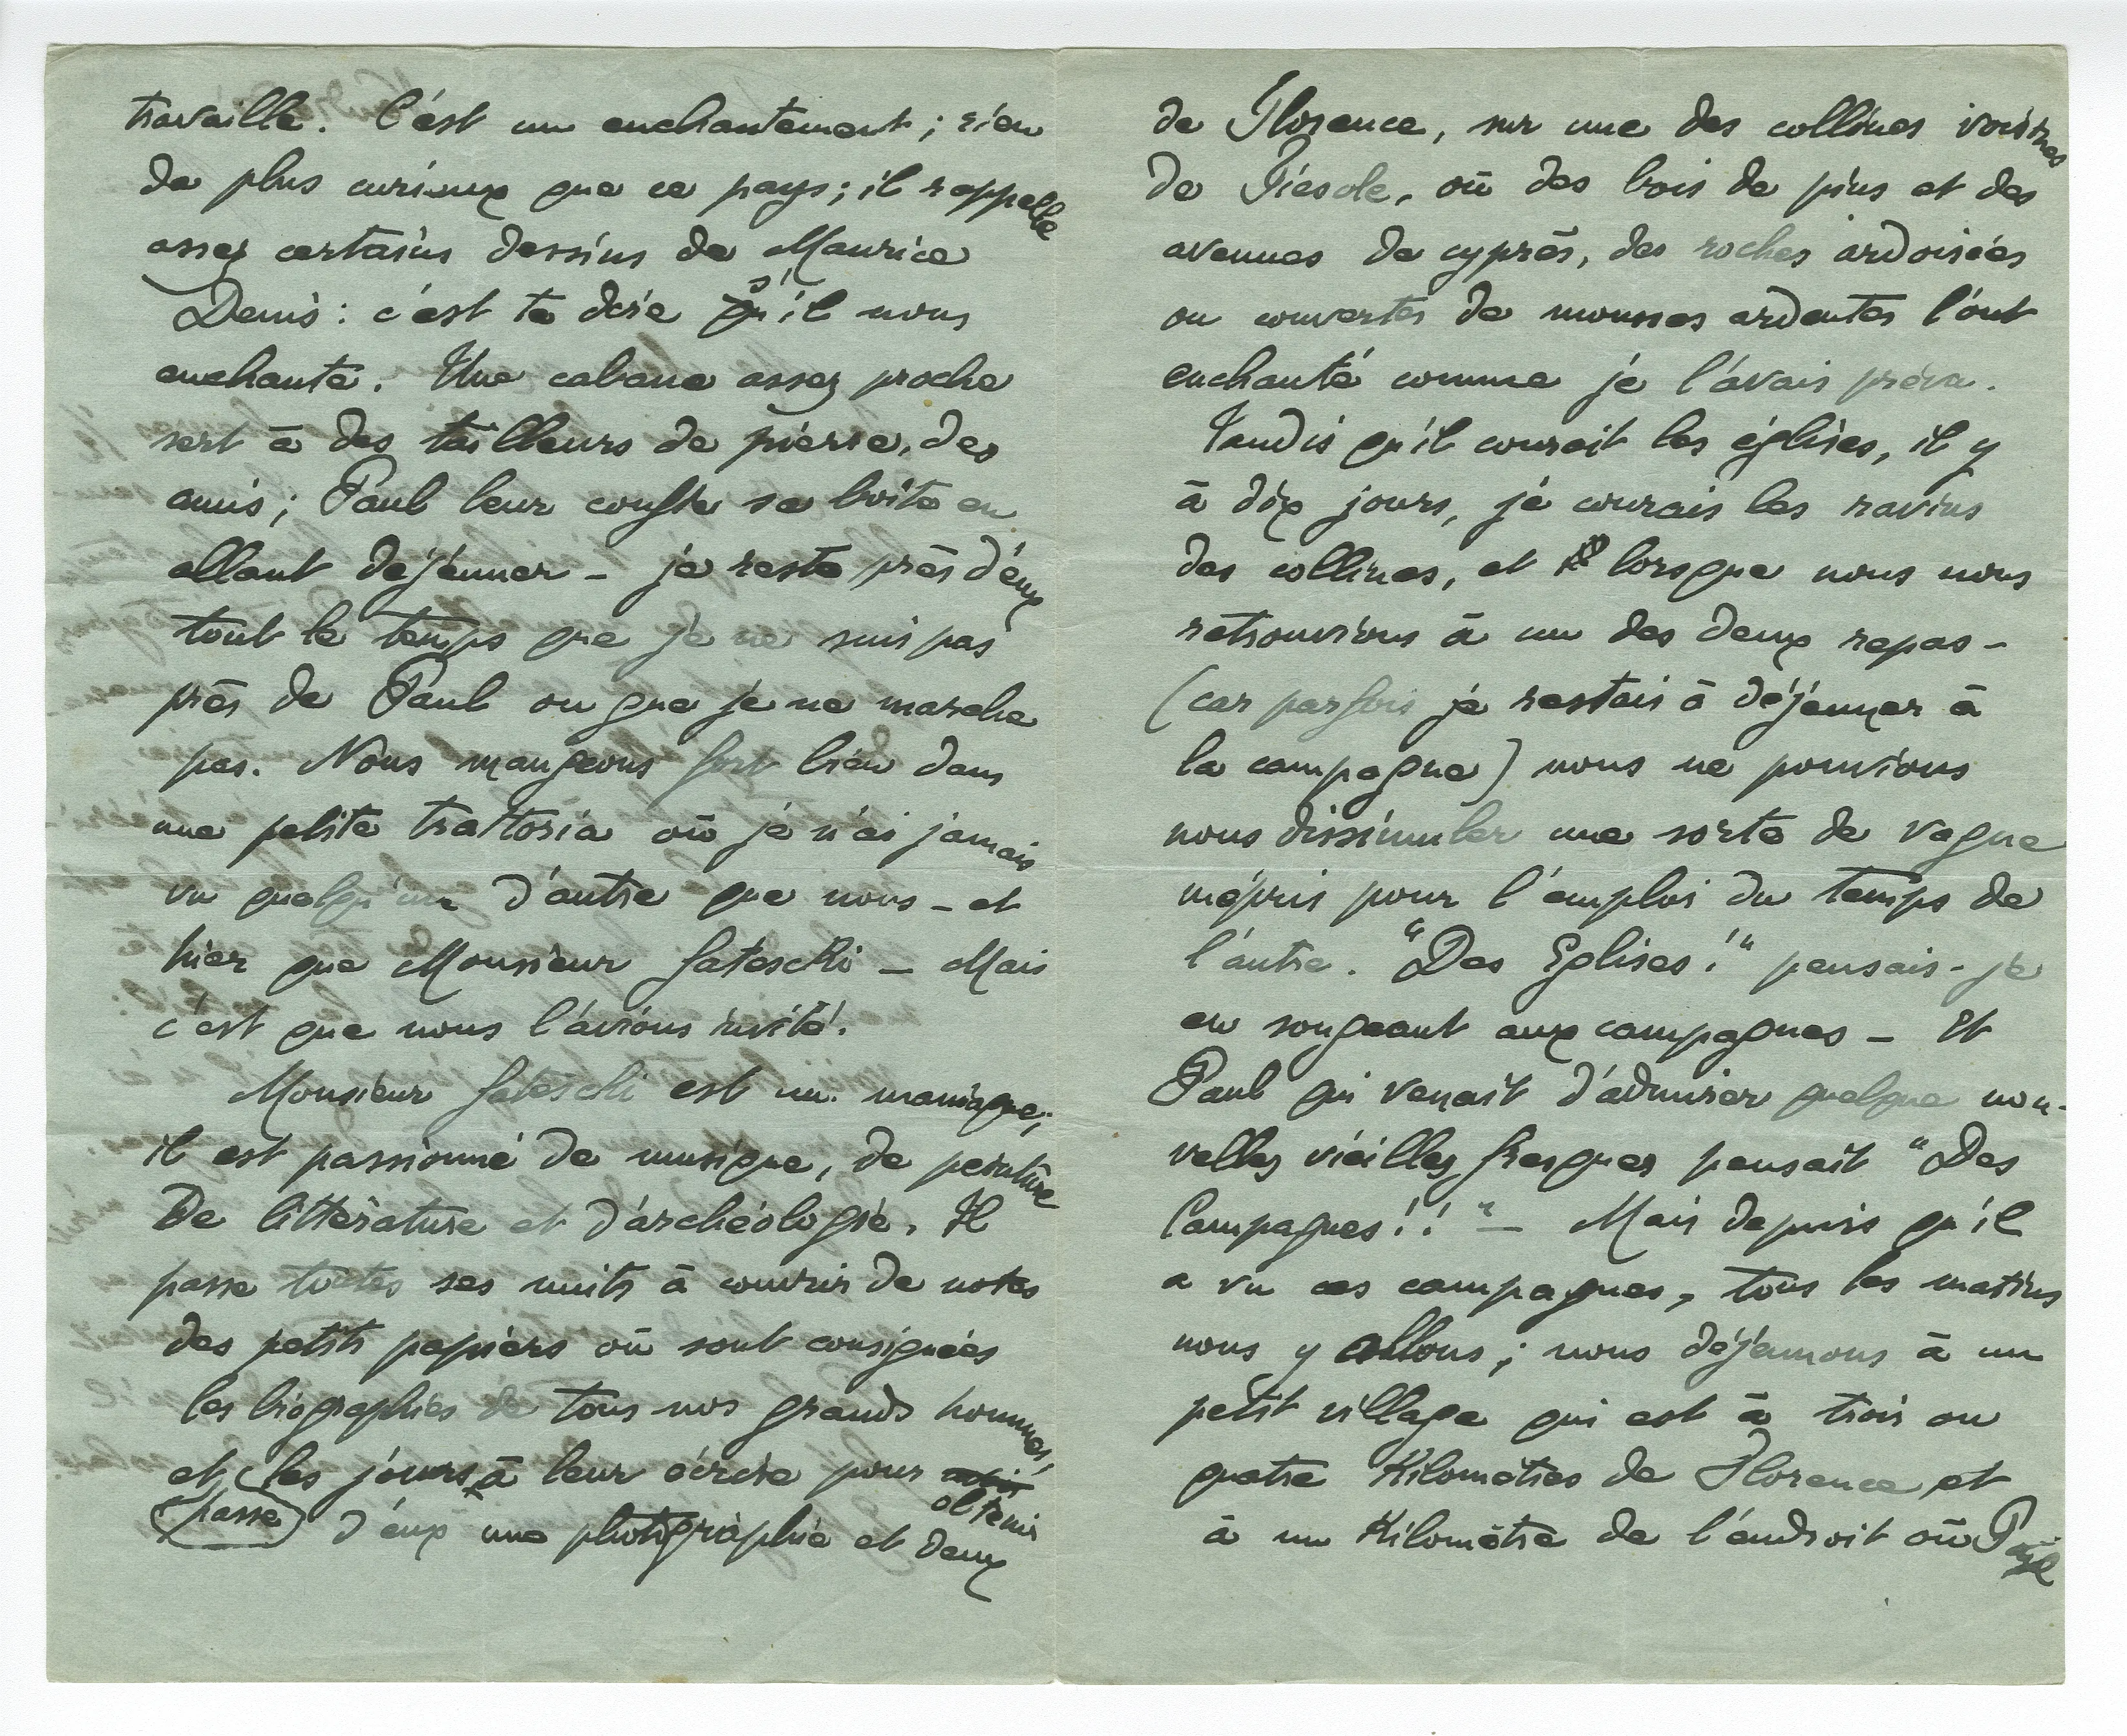 travaille. C'est un enchantement ; rien
de plus curieux que ce pays ; il rappelle
assez certains dessins de Maurice
Denis : c'est te dire s'il nous
enchante. Une cabane assez proche
sert à des tailleurs de pierre, des
amis ; Paul leur confie sa boîte en
allant déjeuner – je reste près d'eux
tout le temps que je ne suis pas
près de Paul ou que je ne marche
pas. Nous mangeons fort bien dans
une petite trattoria où je n'ai jamais
vu quelqu'un d'autre que nous – et
hier que Monsieur Gateschi – Mais
c'est que nous l'avions invité.
Monsieur Gateschi est un maniaque ;
il est passionné de musique, de peinture
De littérature et d'archéologie. Il
passe toutes ses nuits à couvrir de notes
des petits papiers où sont consignées
les biographies de tous nos grands hommes,
et passe les jours à leur écrire pour obtenir
d'eux une photographie et deux
de Florence, sur une des collines voisines
de Fiesole, où des bois de pins et des
avenues de cyprès, des roches ardoisées
ou couvertes de mousses ardentes l'ont
enchanté comme je l'avais prévu.
Tandis qu'il courait les églises, il y
à dix jours, je courais les ravins
des collines, et lorsque nous nous
retrouvions à un des deux repas –
(car parfois je restais à déjeuner à
la campagne) nous ne pouvions
nous dissimuler une sorte de vague
mépris pour l'emploi du temps de
l'autre. "Des Eglises !" pensais-je
en songeant aux campagnes – Et
Paul qui venait d'admirer quelque nou-
velles vieilles fresques pensait "Des
Campagnes ! ! " – Mais depuis qu'il
a vu ces campagnes, tous les matins
nous y allons ; nous déjeunons à un
petit village qui est à trois ou
quatre Kilomètres de Florence et
à un Kilomètre de l'endroit où Paul